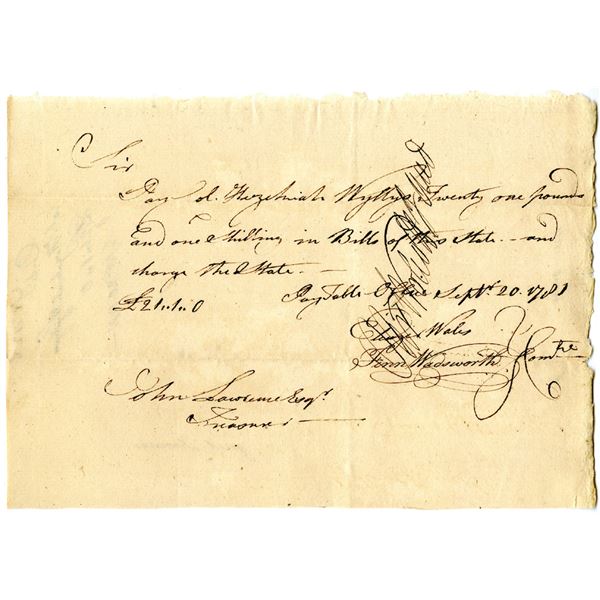 Sir
Pay Col. Hezekiah Wyllys Twenty one pounds
and one Shilling in Bills of this State — and
charge the State. —
£21..1..0 Pay Table Office Septr. 20. 1781
Eleazr Wales
Fenn Wadsworth } Comtee
John Lawrence Esqr.
Treasurer —